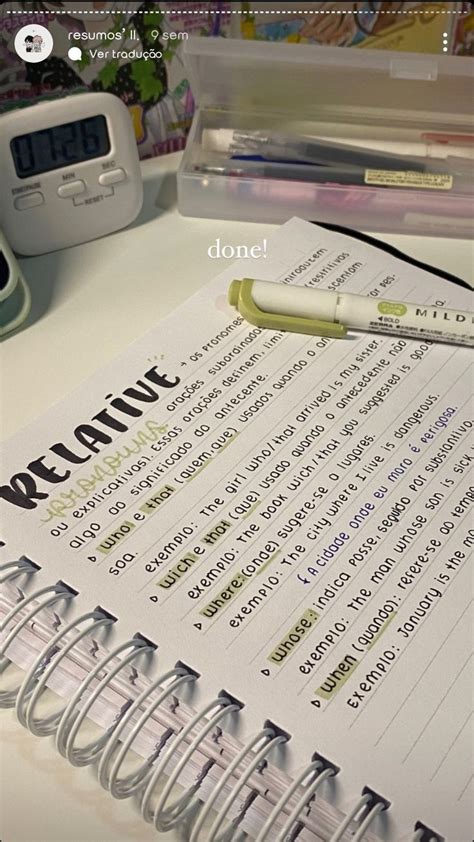 resumos' II, 9 sem
Ver tradução
07:26
MIN
SEC
RESET
done!
MILD
BOLD
ZEBRA
RELATIVE
pronouns
→ os pronomes
introduzem
orações subordinadas
restritivas
ou explicativas). Essas orações definem, limi
algo ao significado do antecente.
▷ who e that (quem, que) usados quando o an
soa.
exemplo: The girl who/that arrived is my sister
▷ wich e that (que) usado quando o antecedente não
exemplo: The book wich/that you suggested is good
▷ where: (onde) sugere-se a lugares.
exemplo: The city where I live is dangerous.
A cidade onde eu moro é perigosa.
▷ whose: indica posse, seguido por substantivo.
exemplo: The man whose son is sick
▷ when (quando): refere-se ao tem
Exemplo: January is the mo